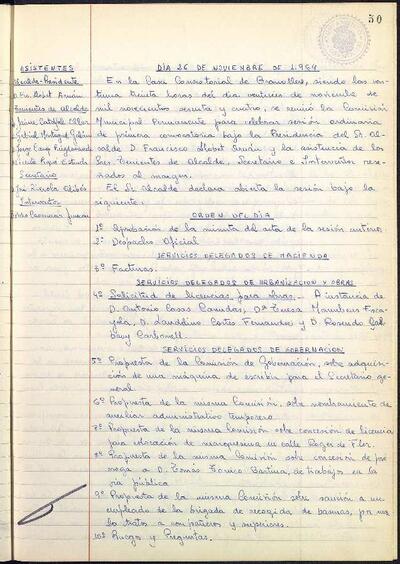 50
ASISTENTES
Alcalde-Presidente
Tenientes de Alcalde
Secretario
Interventor
DÍA 26 DE NOVIEMBRE DE 1.964
En la Casa Consistorial de Granollers, siendo las
treinta horas del día de noviembre de
mil novecientos sesenta y cuatro, se reunió la Comisión
Municipal Permanente para celebrar sesión ordinaria
de primera convocatoria bajo la Presidencia del Sr. Al-
calde D. Francisco Llobet y la asistencia de los
Sres. Tenientes de Alcalde, Secretario e Interventor rese-
ñados al margen.
El Sr. Alcalde declara abierta la sesión bajo la
siguiente:
ORDEN DEL DÍA
1º Aprobación de la minuta del acta de la sesión anterior
2º Despacho Oficial
SERVICIOS DELEGADOS DE HACIENDA
3º Facturas.
SERVICIOS DELEGADOS DE URBANIZACION Y OBRAS
4º Solicitud de licencias para obras. - A instancia de
D. Antonio Casas Canudas, Dª Teresa
D. Laudelino Cortes Fernandez y D. Rosendo Gal-
bany Carbonell.
SERVICIOS DELEGADOS DE GOBERNACION
5º Propuesta de la Comisión de Gobernación, sobre adquisi-
ción de una máquina de escribir para el Secretario ge-
neral
6º Propuesta de la misma Comisión, sobre nombramiento de
auxiliar administrativo temporero.
7º Propuesta de la misma Comisión sobre concesión de licencia
para colocación de marquesina en calle Roger de Flor.
8º Propuesta de la misma Comisión sobre concesión de pró-
rroga a D. Tomás de trabajos en la
vía pública
9º Propuesta de la misma Comisión sobre sanción a un
empleado de la brigada de recogida de basuras, por ma-
los tratos a compañeros y superiores.
10º Ruegos y Preguntas.